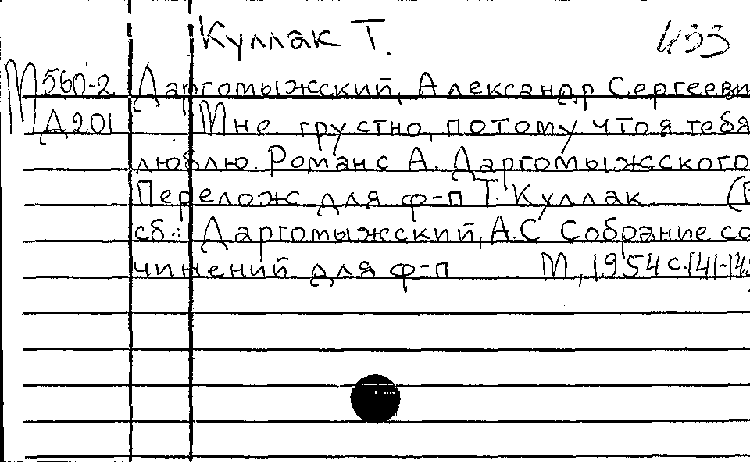 Куллак Т. 433
М560-2 Даргомыжский, Александр Сергееви
Д201 Мне грустно, потому что я тебя
люблю. Романс А. Даргомыжского
Перелож для ф-п Т. Куллак (В
сб.: Даргомыжский, А.С Собрание со
чинений для ф-п М., 1954 с.141-145